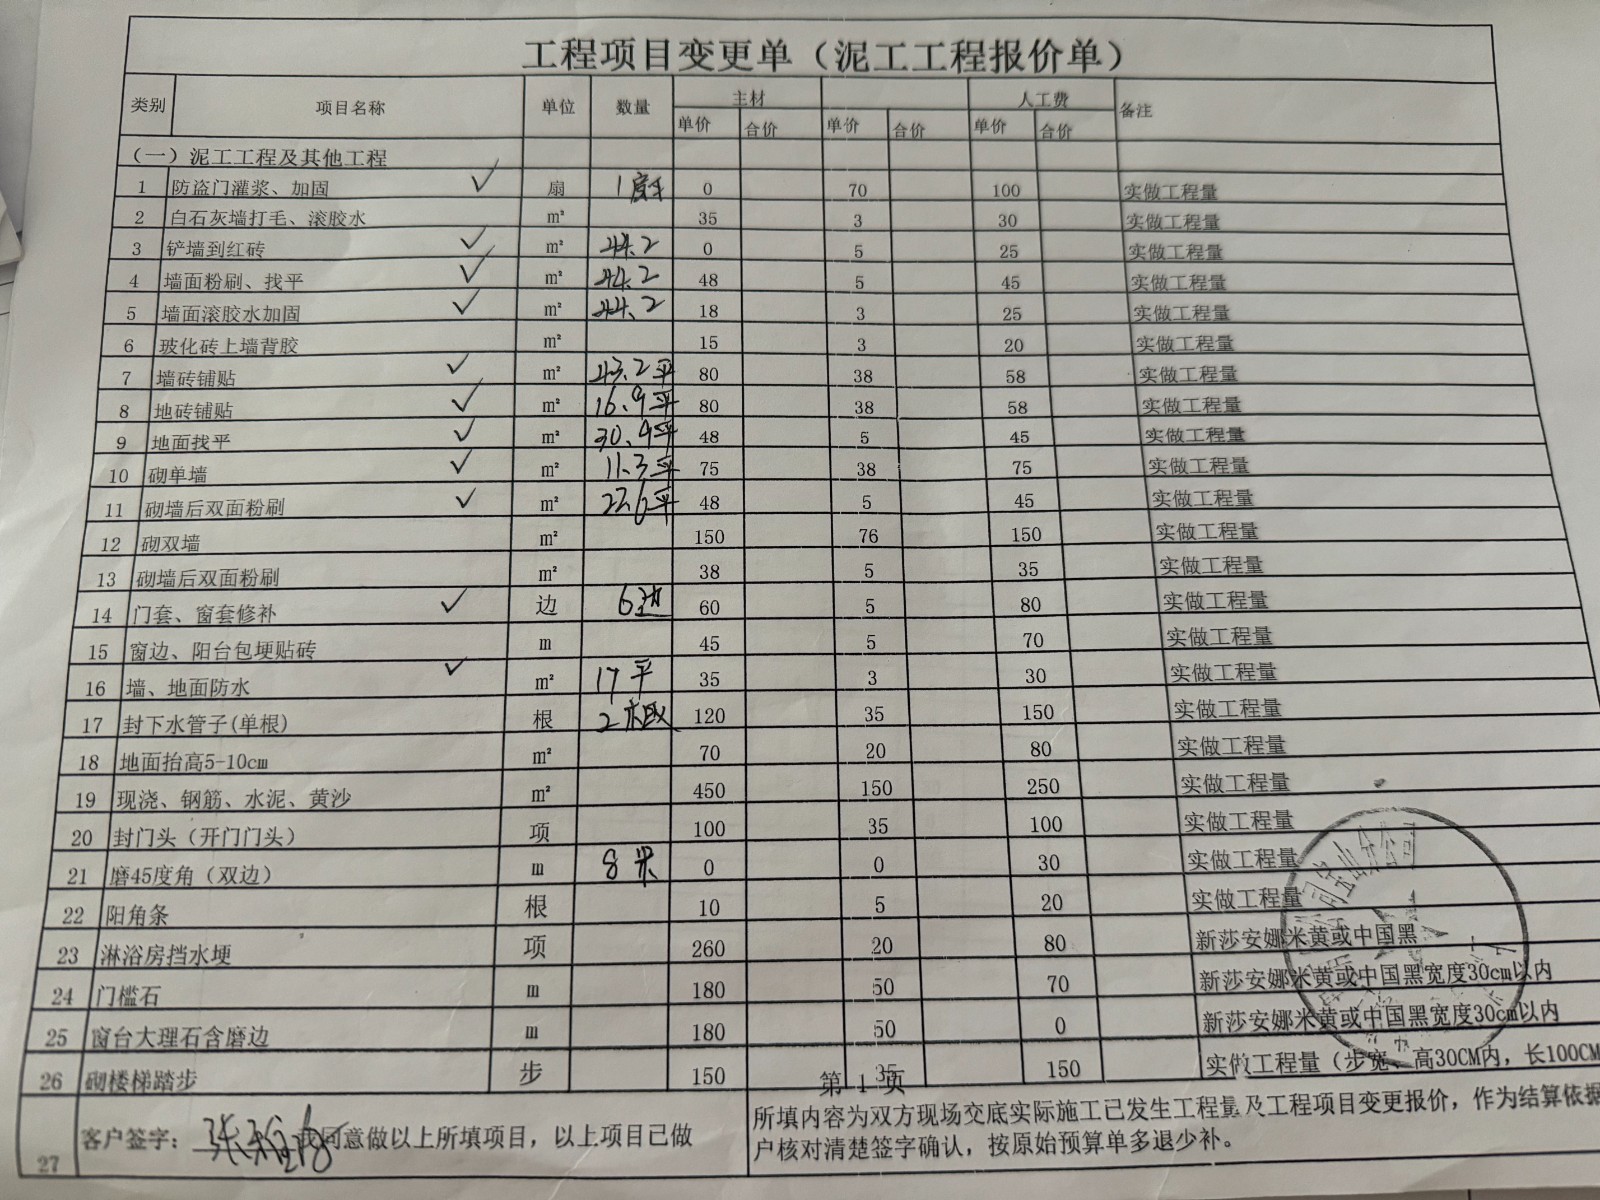 工程项目变更单（泥工工程报价单）
类别 项目名称 单位 数量 主材 人工费 备注
单价 合价 单价 合价 单价 合价
（一）泥工工程及其他工程
1 防盗门灌浆、加固 ✓ 扇 1扇 0 70 100 实做工程量
2 白石灰墙打毛、滚胶水 m² 35 3 30 实做工程量
3 铲墙到红砖 ✓ m² 44.2 0 5 25 实做工程量
4 墙面粉刷、找平 ✓ m² 44.2 48 5 45 实做工程量
5 墙面滚胶水加固 ✓ m² 44.2 18 3 25 实做工程量
6 玻化砖上墙背胶 m² 15 3 20 实做工程量
7 墙砖铺贴 ✓ m² 43.2平 80 38 58 实做工程量
8 地砖铺贴 ✓ m² 16.9平 80 38 58 实做工程量
9 地面找平 ✓ m² 30.9平 48 5 45 实做工程量
10 砌单墙 ✓ m² 11.3平 75 38 75 实做工程量
11 砌墙后双面粉刷 ✓ m² 22.6平 48 5 45 实做工程量
12 砌双墙 m² 150 76 150 实做工程量
13 砌墙后双面粉刷 m² 38 5 35 实做工程量
14 门套、窗套修补 ✓ 边 6边 60 5 80 实做工程量
15 窗边、阳台包埂贴砖 m 45 5 70 实做工程量
16 墙、地面防水 ✓ m² 17平 35 3 30 实做工程量
17 封下水管子(单根) 根 2根 120 35 150 实做工程量
18 地面抬高5-10cm m² 70 20 80 实做工程量
19 现浇、钢筋、水泥、黄沙 m² 450 150 250 实做工程量
20 封门头（开门门头） 项 100 35 100 实做工程量
21 磨45度角（双边） m 8米 0 0 30 实做工程量
22 阳角条 根 10 5 20 实做工程量
23 淋浴房挡水埂 项 260 20 80 新莎安娜米黄或中国黑
24 门槛石 m 180 50 70 新莎安娜米黄或中国黑宽度30cm以内
25 窗台大理石含磨边 m 180 50 0 新莎安娜米黄或中国黑宽度30cm以内
26 砌楼梯踏步 步 150 35 150 实做工程量（步宽、高30CM内，长100CM
第 1 页
27 客户签字： 我同意做以上所填项目，以上项目已做
所填内容为双方现场交底实际施工已发生工程量及工程项目变更报价，作为结算依据
户核对清楚签字确认，按原始预算单多退少补。
司宝山分公司